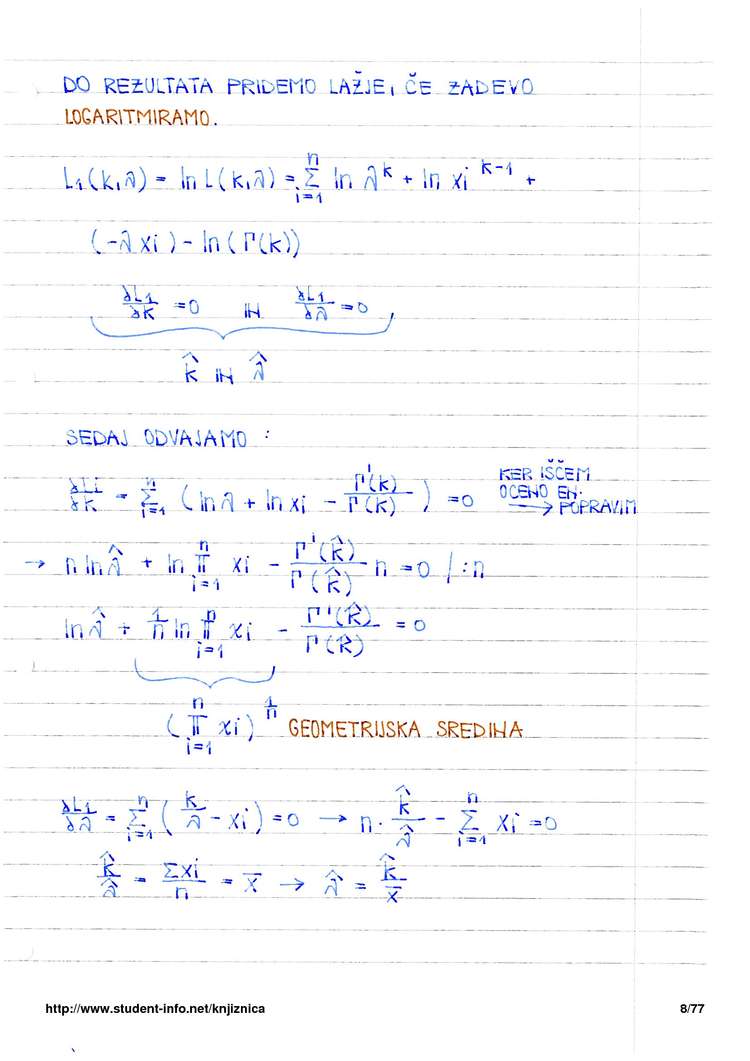 DO REZULTATA PRIDEMO LAŽJE, ČE ZADEVO
LOGARITMIRAMO.
L₁(k,λ) = ln L(k,λ) = Σ_{i=1}^{n} ln λ^k + ln xi^{k-1} +
(-λxi) - ln(Γ(k))
∂L₁/∂k = 0 IN ∂L₁/∂λ = 0
k̂ IN λ̂
SEDAJ ODVAJAMO :
∂L₁/∂k = Σ_{i=1}^{n} (ln λ + ln xi - Γ'(k)/Γ(k)) = 0
KER IŠČEM
OCENO EN.
→ POPRAVIM
→ n ln λ̂ + ln ∏_{i=1}^{n} xi - Γ'(k̂)/Γ(k̂) n = 0 /:n
ln λ̂ + 1/n ln ∏_{i=1}^{n} xi - Γ'(k̂)/Γ(k̂) = 0
(∏_{i=1}^{n} xi)^{1/n} GEOMETRIJSKA SREDINA
∂L₁/∂λ = Σ_{i=1}^{n} (k/λ - xi) = 0 → n · k̂/λ̂ - Σ_{i=1}^{n} xi = 0
k̂/λ̂ = Σxi/n = x̄ → λ̂ = k̂/x̄
http://www.student-info.net/knjiznica 8/77